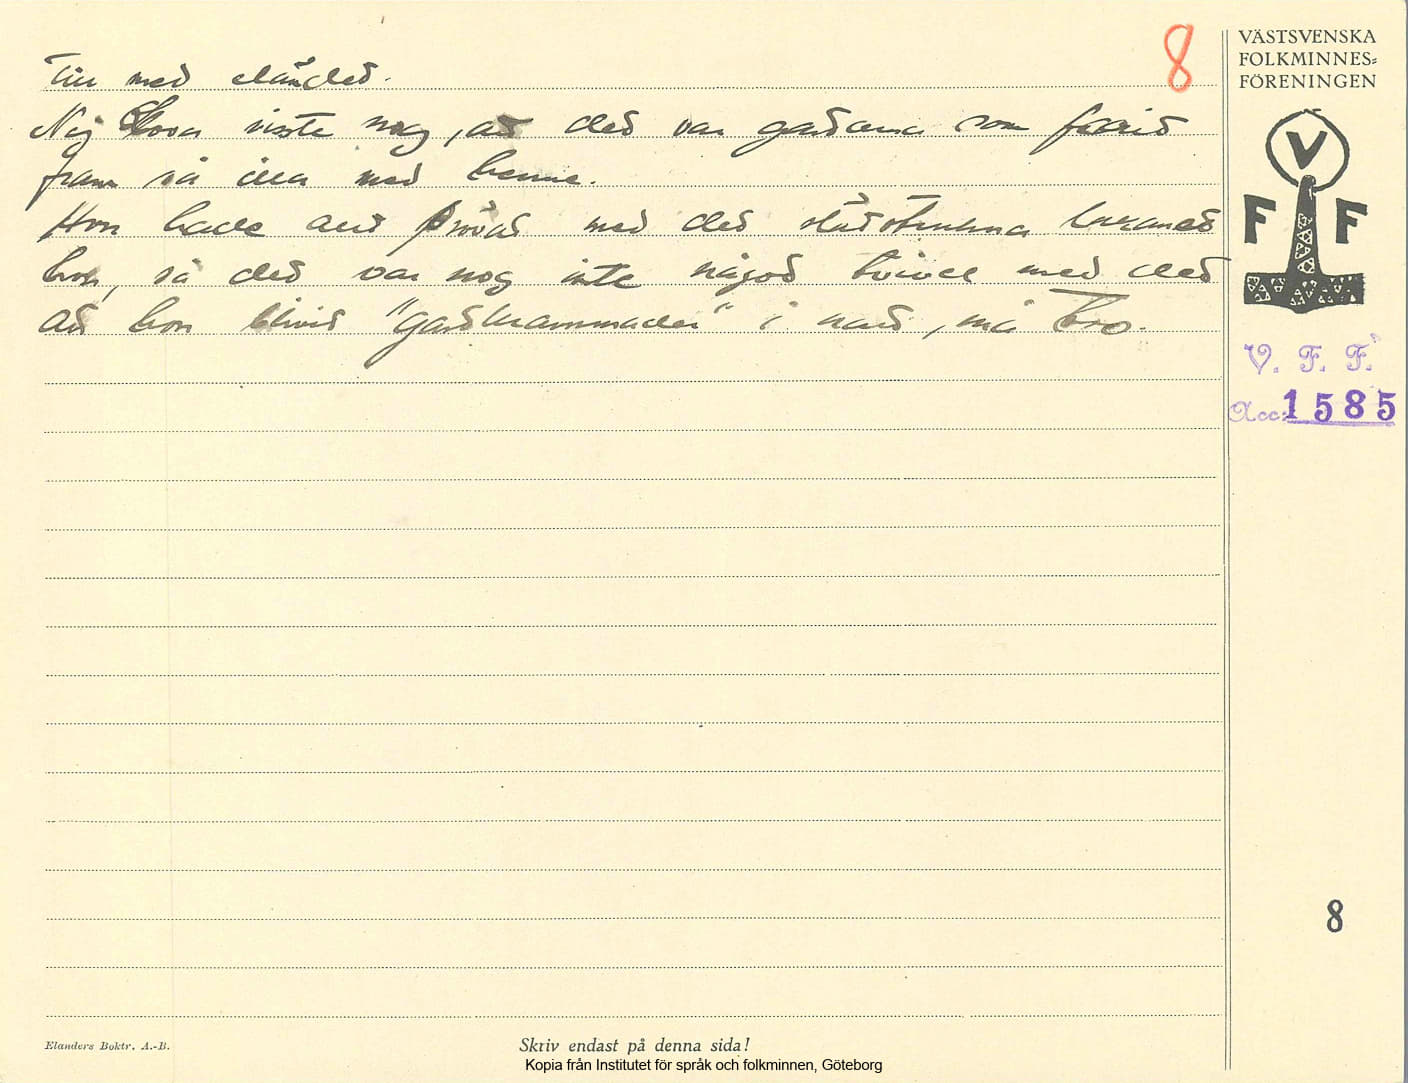 8
VÄSTSVENSKA
FOLKMINNES=
FÖRENINGEN
till med eländet.
Nej Mora visste nog, att det var gastarna som farit
fram så illa med henne.
Hon hade allt prövat med det
hon, så det var nog inte något tvivel med det
att hon blivit "gastkrammader" i natt, må tro.
V
F F
V. F. F.
Acc: 1585
8
Elanders Boktr. A.-B.
Skriv endast på denna sida!
Kopia från Institutet för språk och folkminnen, Göteborg